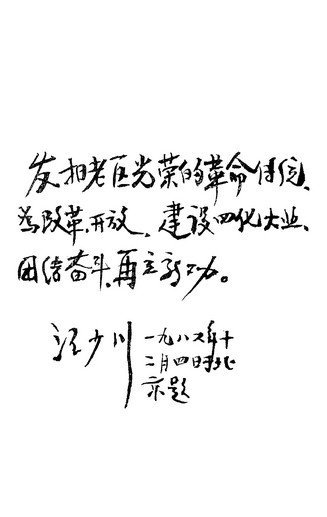 发扬老区光荣的革命传统、
为改革开放、建设四化大业、
团结奋斗、再立新功。
汪少川
一九八六年十
二月四日时北
京题